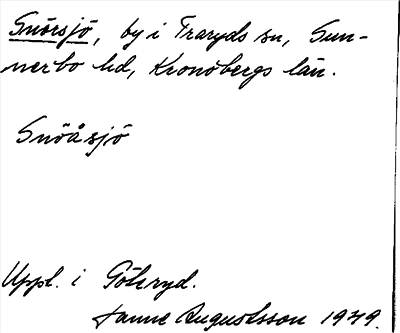 Snörsjö, by i Traryds sn, Sun-
nerbo hd, Kronobergs län.
Snöåsjö
Uppl. i Göteryd.
Janne Augustsson 1949.